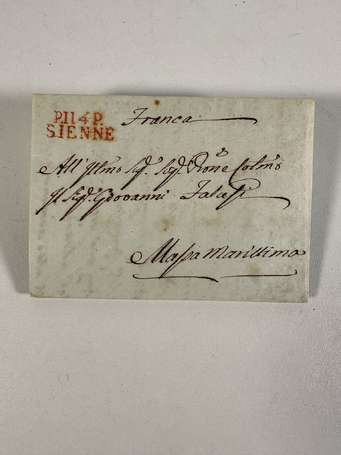 P.114.P.
SIENNE
Franca
All' Illmo Sigr. Sigr. Prone Colmo
Il Sigr. Giovanni Falassi
Massa Marittima